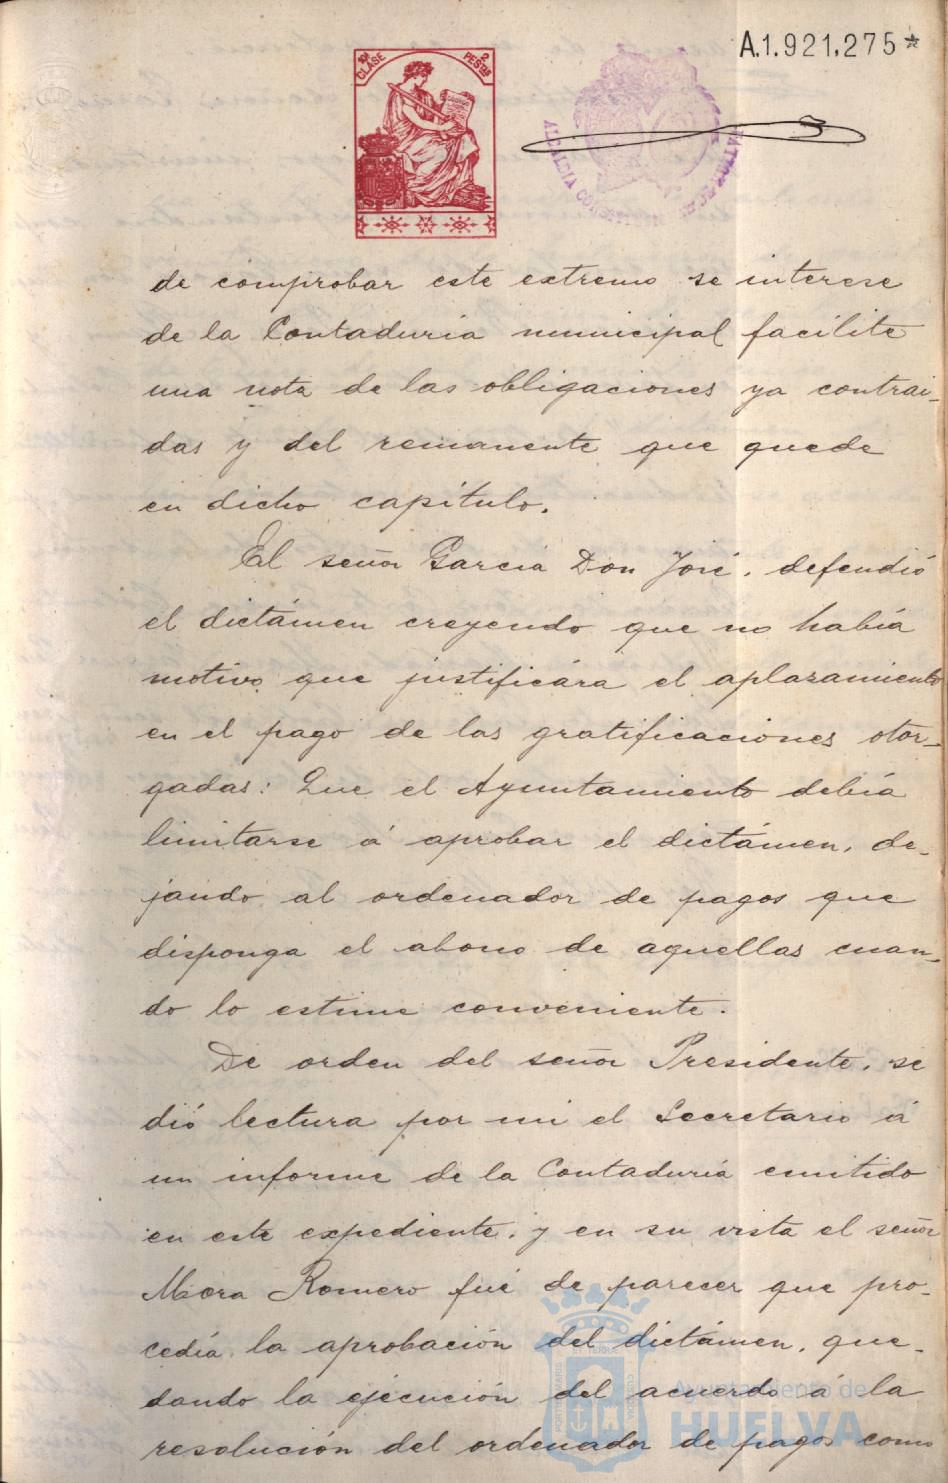 A.1.921.275*
10ª CLASE
2 PESTAS
ALCALDIA CONSTITUCIONAL
de comprobar este extremo se interese
de la Contaduría municipal facilite
una nota de las obligaciones ya contrai-
das y del remanente que quede
en dicho capítulo.
El señor García Don José, defendió
el dictámen creyendo que no había
motivo que justificára el aplazamiento
en el pago de las gratificaciones otor-
gadas: Que el Ayuntamiento debía
limitarse á aprobar el dictámen, de-
jando al ordenador de pagos que
disponga el abono de aquellas cuan-
do lo estime conveniente.
De orden del señor Presidente, se
dió lectura por mi el Secretario á
un informe de la Contaduría emitido
en este expediente, y en su vista el señor
Mora Romero fué de parecer que pro-
cedía la aprobación del dictámen, que-
dando la ejecución del acuerdo á la
resolución del ordenador de pagos como
Ayuntamiento de
HUELVA